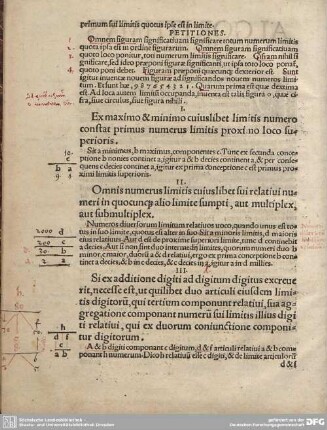 primum sui limitis quotus ipse est in limite.
PETITIONES.
Omnem figuram significatiuam significare totum numerum limitis
quota ipsa est in ordine figurarum. Omnem figuram significatiuam
quoto loco ponitur, toti numerum limitis significare. Cifram nihil si
gnificare, sed ideo præponi figuræ significanti, ut ipsa toto loco ponat,
quoto poni debet. Figuram præponi quæcunque dexterior est. Sunt
igitur inuentæ nouem figuræ ad significandos nouem numeros limi
tum. Et sunt hæ. 9 8 7 6 5 4 3 2 1. Quarum prima est quæ dexima
est. Ad loca autem limitū occupanda, inuenta est talis figura 0, quæ cifra,
siue circulus, siue figura nihili.
I.
Ex maximo & minimo cuiuslibet limitis numero
constat primus numerus limitis proximo loco su
perioris.
Sit a minimus, b maximus, componentes c. Tunc ex secunda
conceptione b nouies continet a, igitur a & b decies continet a, & per conse
quens c decies continet a, igitur ex prima conceptione c est primus
limitis superioris.
II.
Omnis numerus limitis cuiuslibet sui relatiui nu
meri in quocunque alio limite sumpti, aut multiplex,
aut submultiplex.
Numeros diuersorum limitum relatiuos uoco, quando unus est to
tus in suo limite, quotus est alter in suo. Sit a minoris limitis, d maioris
eius relatiuus. Aut d est de proxime superiori limite, tunc d continebit
a decies. Aut si non sint duo intermedij limites, quorum numeri duo b
minor, c maior, dictis a & d relatiui, ergo ex prima conceptione b conti
net a decies, & b in c decies, & c decies in d, igitur a in d millies.
III.
Si ex additione digiti ad digitum digitus excreue
rit, necesse est, ut quilibet duo articuli eiusdem limi
tis digitorū, qui tertium componunt relatiui, sua ag
gregatione componant numerū sui limitis illius digi
ti relatiui, qui ex duorum coniunctione componi
tur digitorum.
A & b digiti componant c digitum, d & f articuli relatiui a & b com
ponant h numerum. Dico h relatiuus esse c digiti, & de limite articulorū
d & f
10. c
b a
9 1
2000 d
200 c
30. b
2 a
h
d f
c
a b